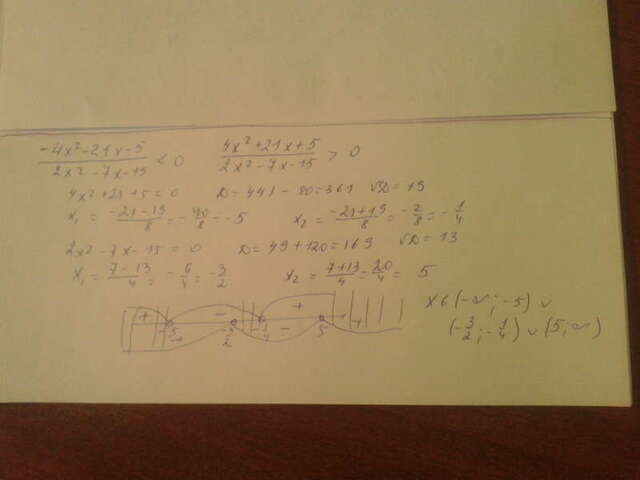 (-4x²-21x-5)/(2x²-7x-15) < 0   (4x²+21x+5)/(2x²-7x-15) > 0
4x²+21+5=0   D=441-80=361   √D=19
x₁ = (-21-19)/8 = -40/8 = -5   x₂ = (-21+19)/8 = -2/8 = -1/4
2x²-7x-15=0   D=49+120=169   √D=13
x₁ = (7-13)/4 = -6/4 = -3/2   x₂ = (7+13)/4 = 20/4 = 5
+ - + - +
-5   -3/2   -1/4   5
x є (-∞; -5) ∪
(-3/2; -1/4) ∪ (5; ∞)